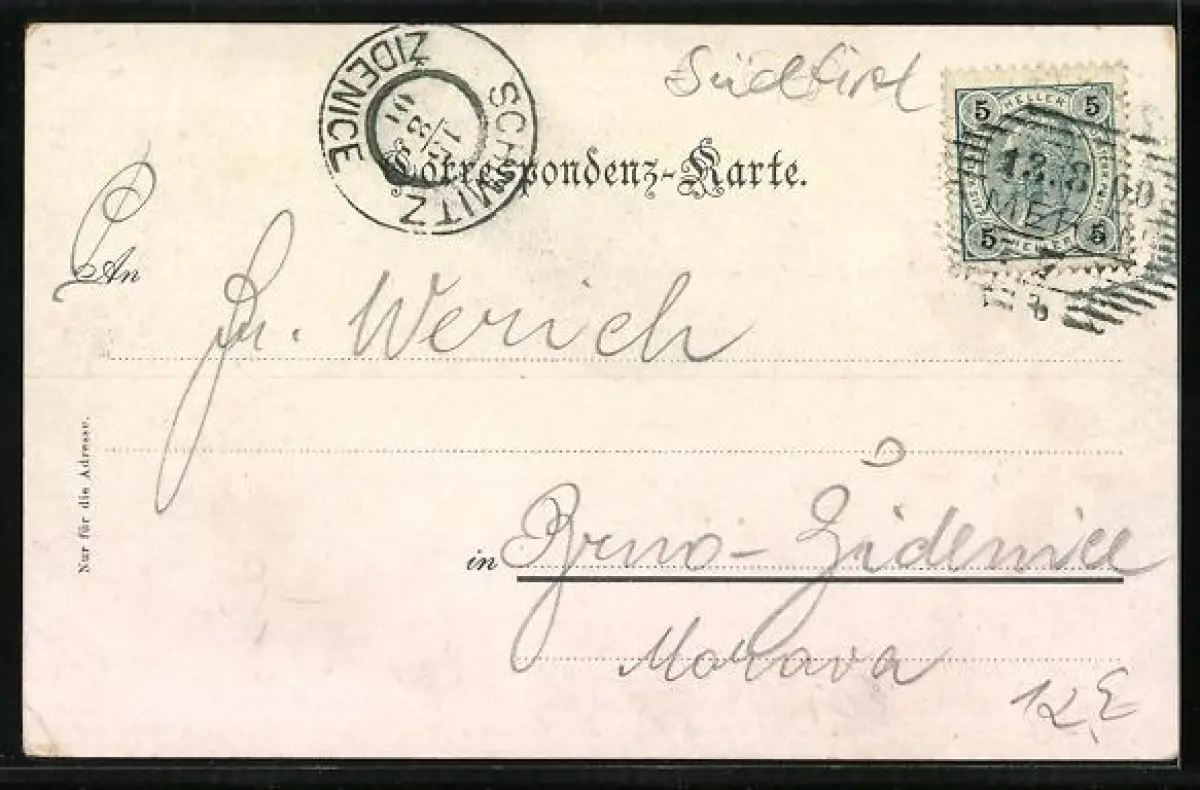 Südtirol
ŽIDENICE
SCHIMITZ
15/8
Correspondenz-Karte.
5 HELLER 5
13.8.00
MER
5 HELLER 5
An
Fr. Werich
Nur für die Adresse.
in Brno - Židenice
Morava
12E